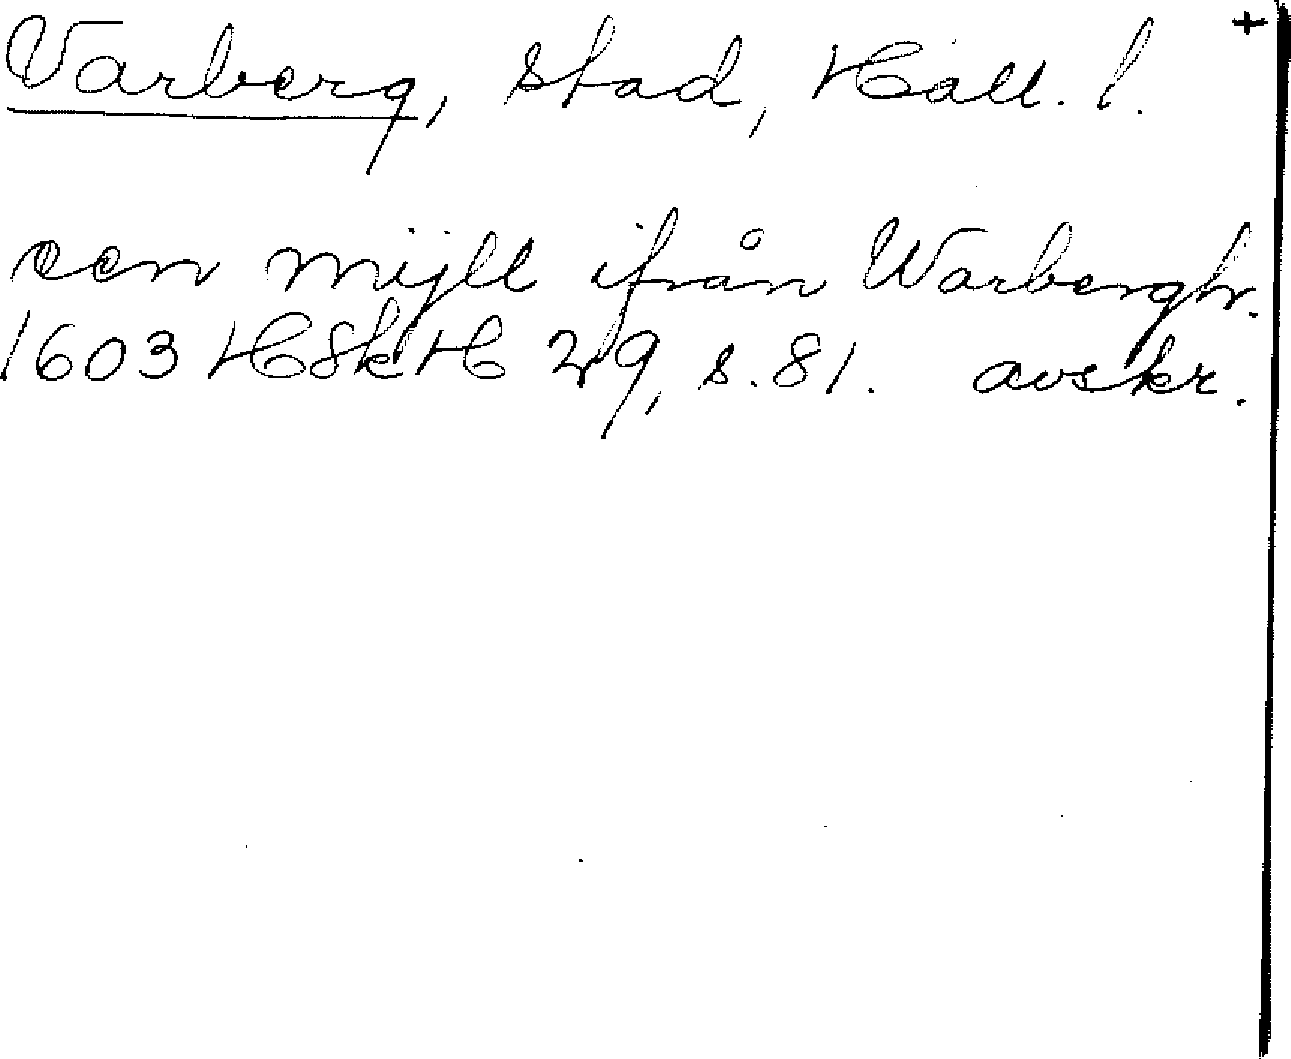 Varberg, stad, Hall. l. +
een mijll ifrån Warbergh.
1603 HSkH 29, s. 81. avskr.